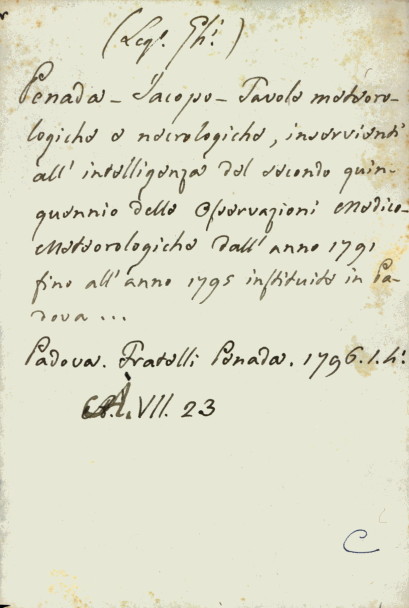 (Leg. Ghi.)
Penada - Jacopo - Tavole meteoro-
logiche e necrologiche, inservienti
all' intelligenza del secondo quin-
quennio delle Osservazioni Medico-
Meteorologiche dall' anno 1791
fino all' anno 1795 instituite in Pa-
dova ...
Padova. Fratelli Penada. 1796. 1. 4:
A. VII. 23
C